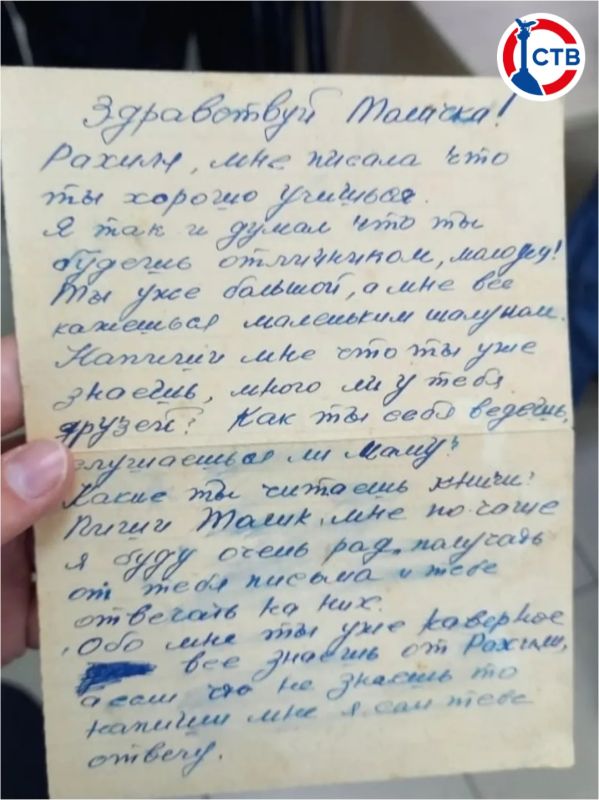 СТВ
Здравствуй Толичка!
Рахиля, мне писала что
ты хорошо учишься.
Я так и думал что ты
будешь отличником, молодец!
Ты уже большой, а мне все
кажешься маленьким шалуном.
Напиши мне что ты уже
знаешь, много ли у тебя
друзей? Как ты себя ведешь,
слушаешься ли маму?
Какие ты читаешь книги?
Пиши Толик, мне по чаще
я буду очень рад, получать
от тебя письма и тебе
отвечать на них.
Обо мне ты уже наверное
все знаешь от Рахили,
а если что не знаешь то
напиши мне я сам тебе
отвечу.